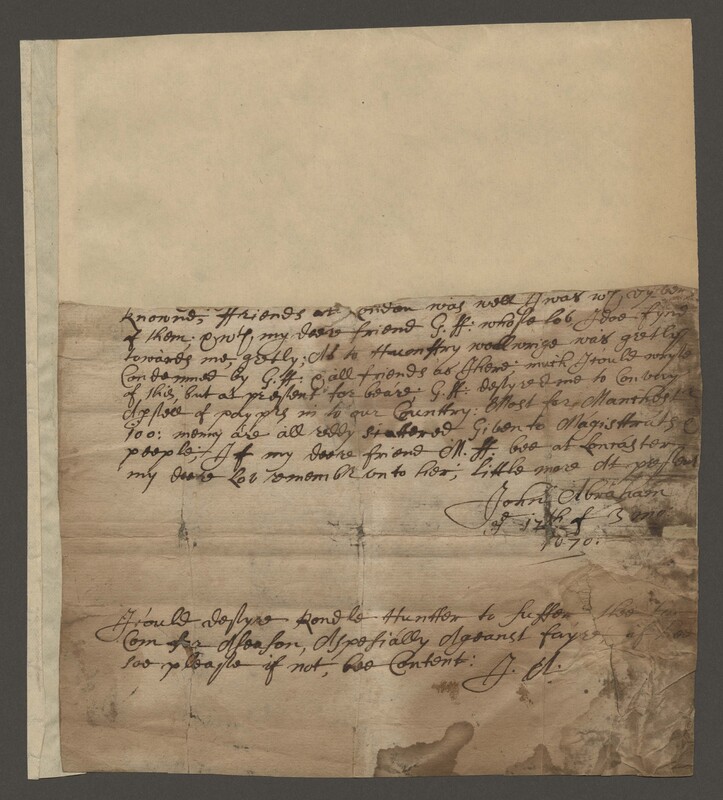 knowne; ffriends at London was well I was wt
of them; & wth my deere friend G: ff: whose lov I doe fynd
towards me, gretly; As to Hawnttry wollwrige was gretly
Condemned by G. ff: & all friends as I here; much I could wryte
of this, but at present for beare; G: ff: desyred me to Convey
Apsell of in to our Countrry: Most for Manchestr
too: meny are all reddy scattered Given to Magisttrats &
people; If my deere friend M: ff: bee at Lancaster
my deere lov remembr onto her; little more At present
John Abraham
of 12th of 3 mo
1670:
I could desyre Rondle Huntter to suffer the
Com for Aseason, Aspesially Ageanst fayre
soe please if not, bee Content: J. A.